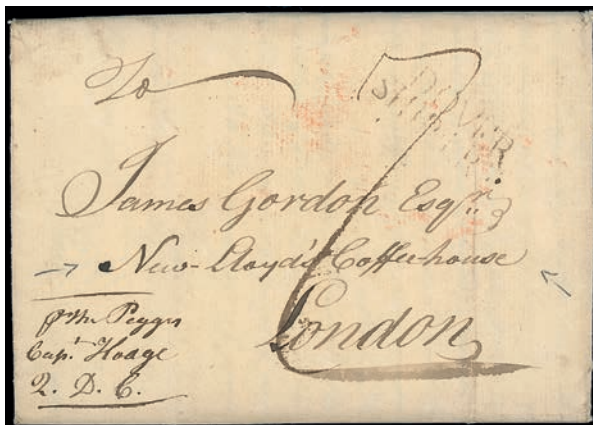 To
DOVER
SHIP LRE
James Gordon Esqr.
New-Lloyd's Coffee-house
London
7
pr the Peggy
Capt. Hoage
Q. D. C.